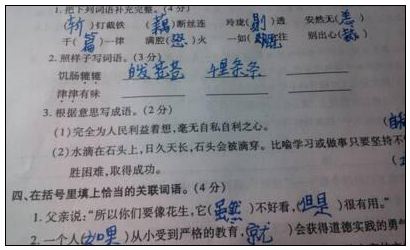 1.把下列词语补充完整。(3分)
(斩)钉截铁 (藕)断丝连 玲珑(剔)透 安然无(恙)
千(篇)一律 满腔(怒)火 一如( )往 别出心( )
2.照样子写词语。(3分)
饥肠辘辘 白发苍苍
津津有味
3.根据意思写成语。(2分)
(1)完全为人民利益着想,毫无自私自利之心。
(2)水滴在石头上,日久天长,石头会被滴穿。比喻学习或做事只要坚持不
胜困难,取得成功。
四、在括号里填上恰当的关联词语。(4分)
1.父亲说:“所以你们要像花生,它(虽然)不好看,(但是)很有用。”
2.一个人(如果)从小受到严格的教育,(就)会获得道德实践的勇气